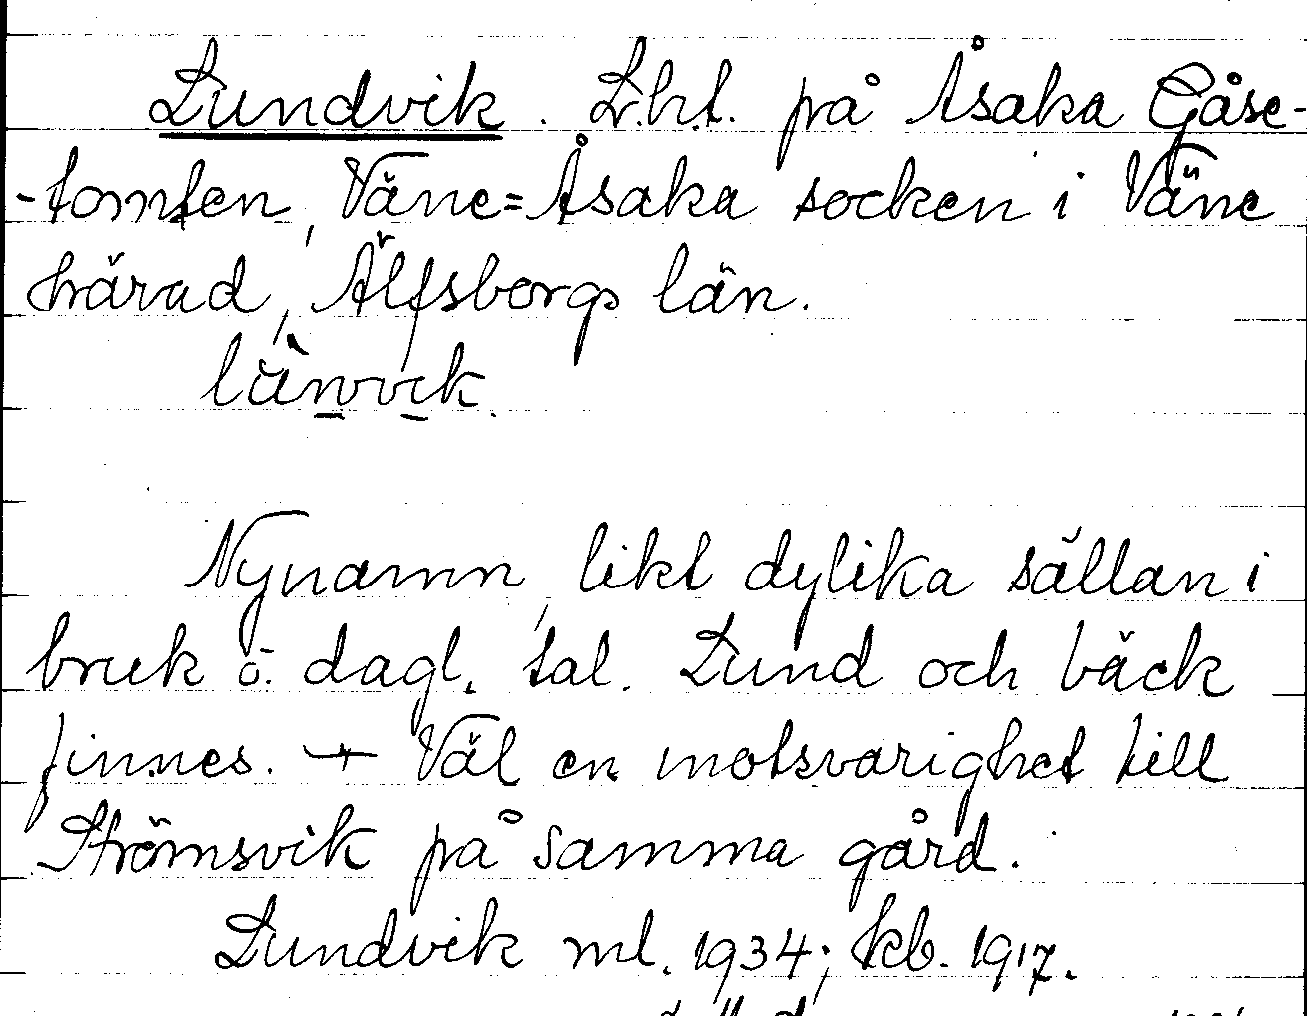 Lundvik. Lht. på Åsaka Gåse-
-tomten, Väne=Åsaka socken i Väne
härad, Älfsborgs län.
Nynamn, likt dylika sällan i
bruk o. dagl. tal. Lund och bäck
finnes. + Väl en motsvarighet till
Strömsvik på samma gård.
Lundvik ml. 1934; kb. 1917.